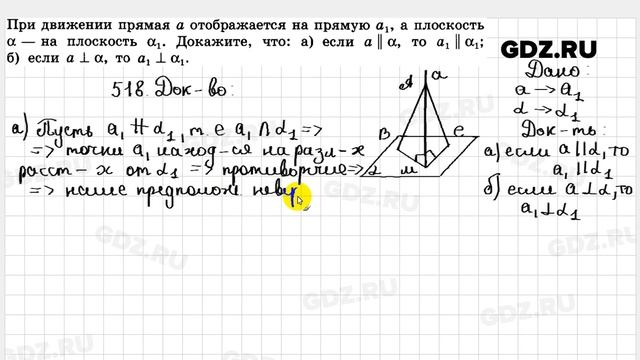 При движении прямая a отображается на прямую a₁, а плоскость
α — на плоскость α₁. Докажите, что: а) если a ∥ α, то a₁ ∥ α₁;
б) если a ⊥ α, то a₁ ⊥ α₁.
GDZ.RU
518. Док-во:
а) Пусть a₁ ∦ α₁, т.е a₁ ∩ α₁ =>
=> точки a₁ наход-ся на разл-х
расст-х от α₁ => противоречие =>
=> наше предполож. невер
A
a
B
C
M
α
Дано:
a → a₁
α → α₁
Док-ть:
а) если a ∥ α, то
a₁ ∥ α₁
б) если a ⊥ α, то
a₁ ⊥ α₁
GDZ.RU
GDZ.RU
GDZ.RU
GDZ.RU